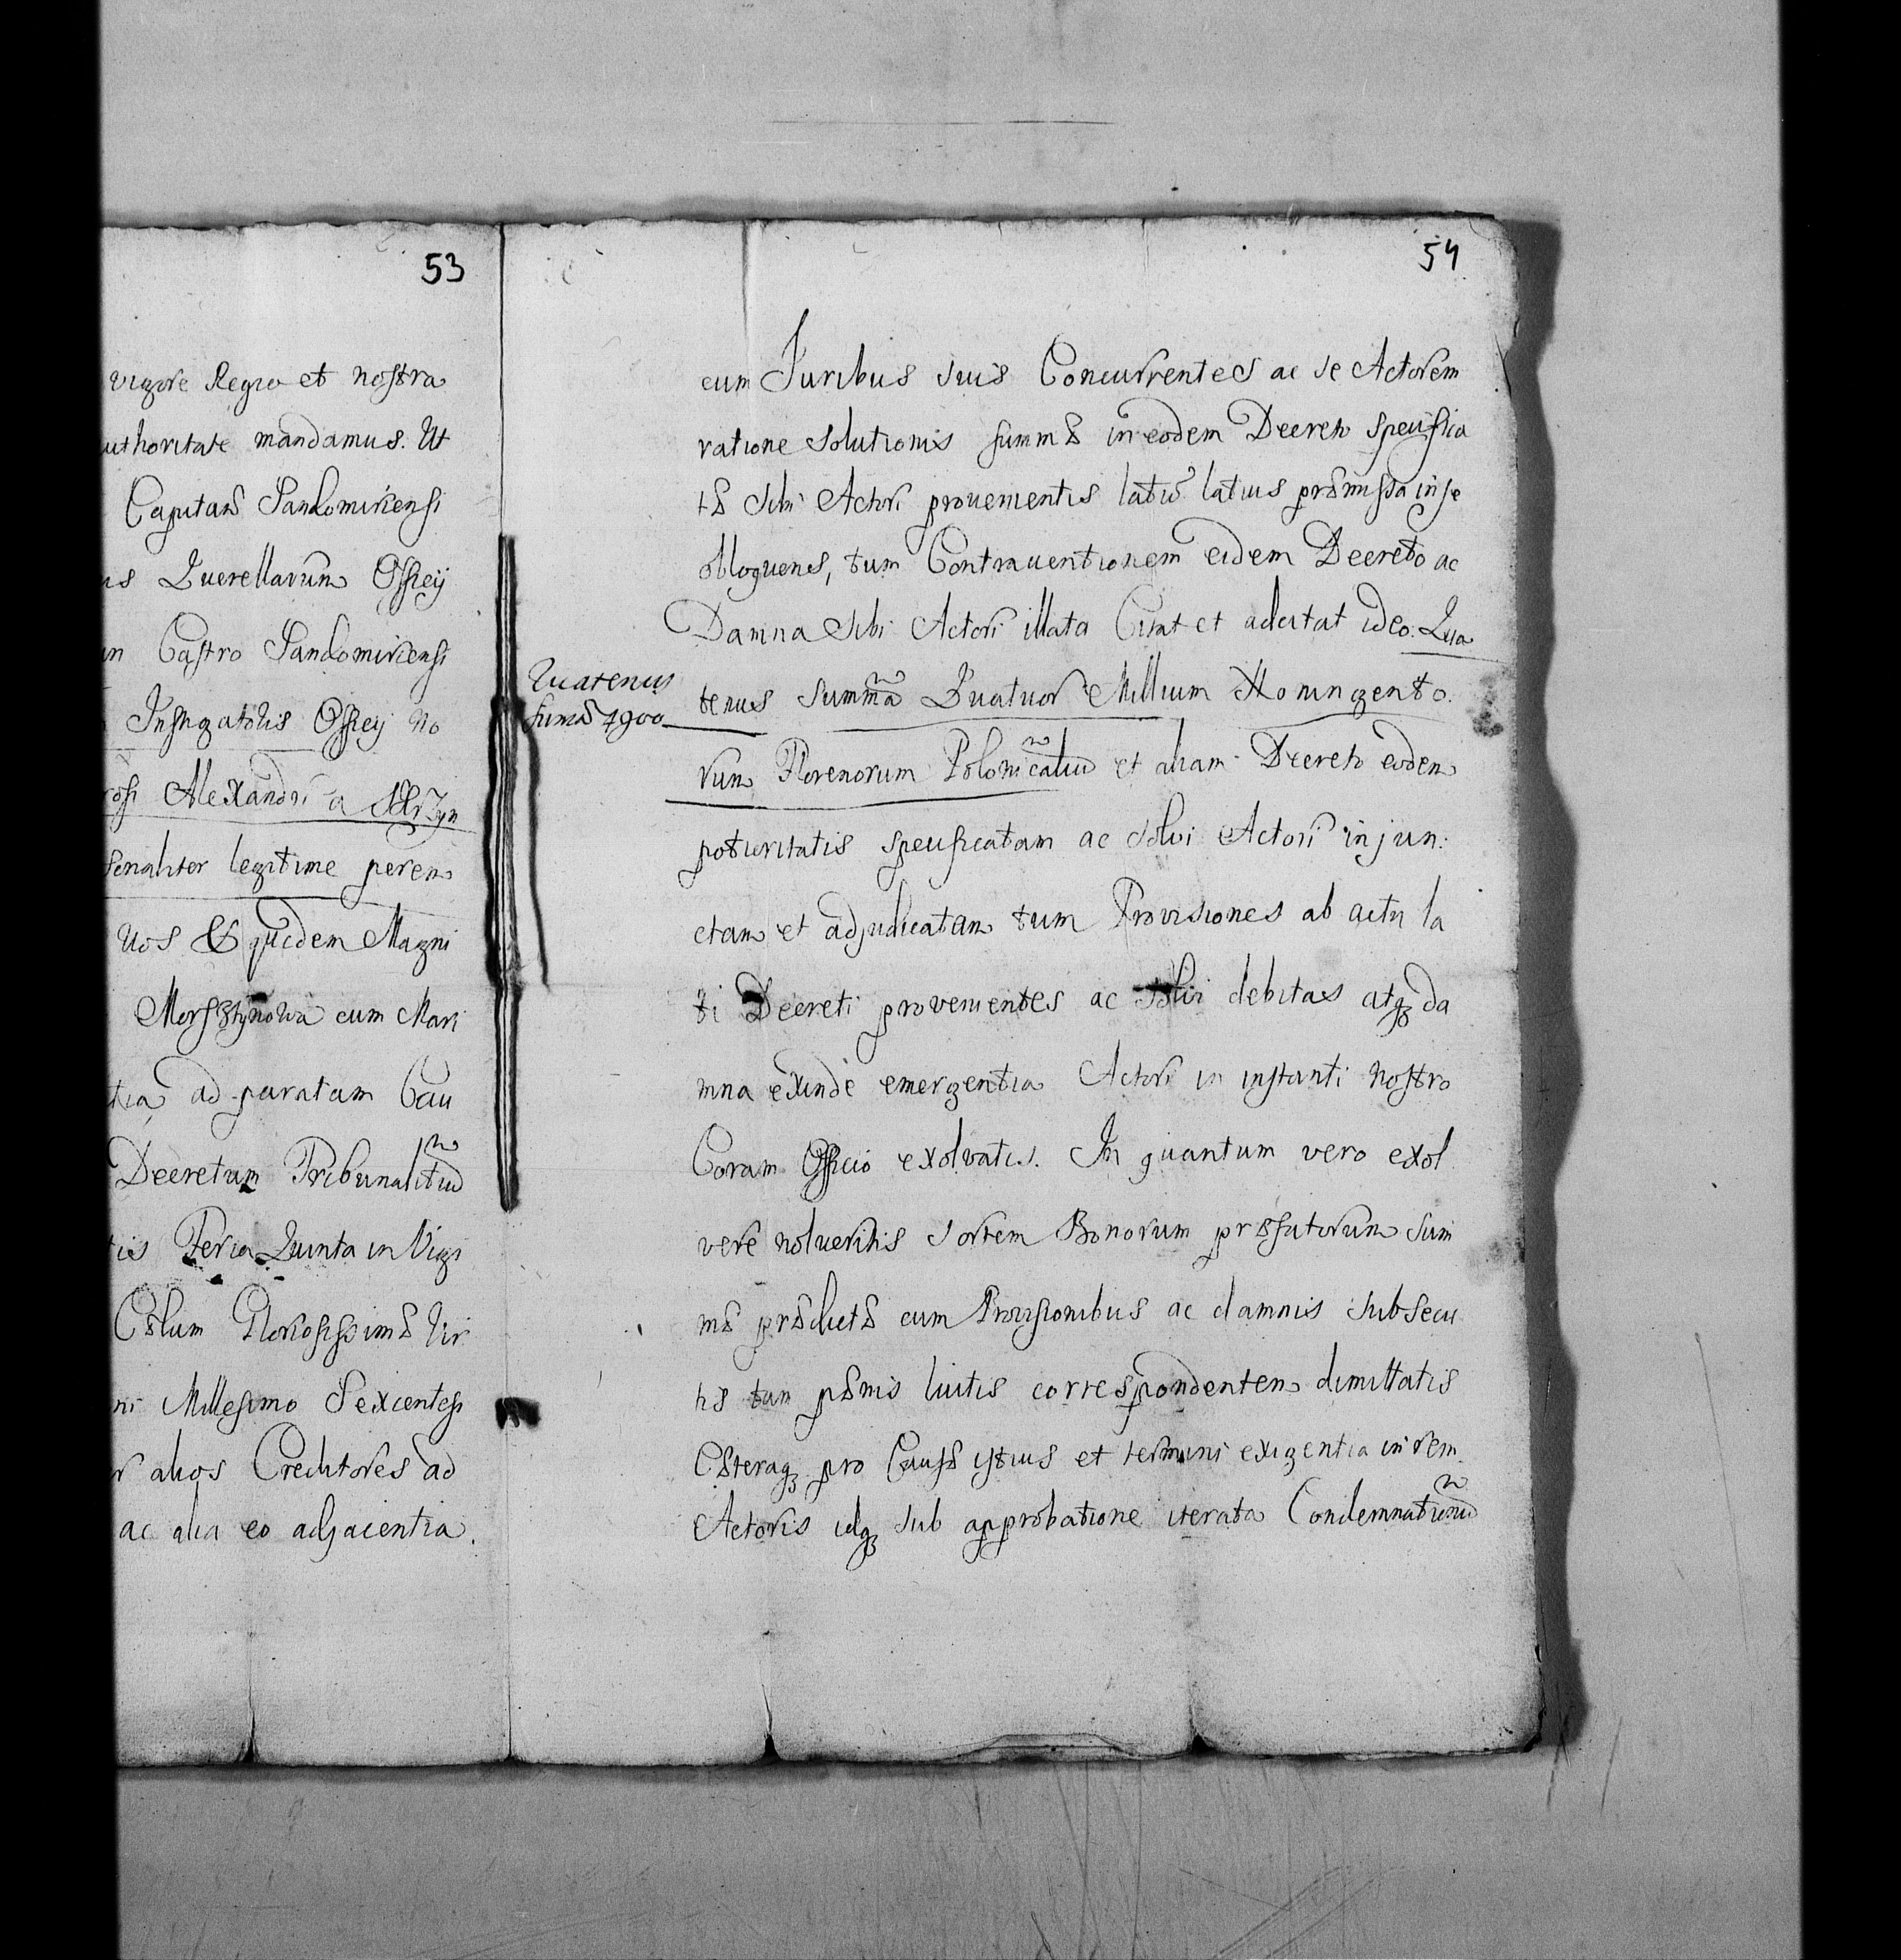 53
vigore Regio et nostra
uthoritate mandamus. Ut
Capitaneo Sandomiriensi
us Querellarum Officij
in Castro Sandomiriensi
Instigatoris Officij No
rosi Alexandri a
senaliter legitime perem
Vos & quidem Magni
Morsztynowa cum Mari
tia ad paratam Cau
Decretum Tribunalitiũ
tis Feria Quinta in Vigi
Cælum Gloriosissimæ Vir
ni Millesimo Sexcentesi
r alios Creditores ad
ac alia eo adjacentia.
54
cum Juribus suis Concurrentes ac se Actorem
ratione Solutionis summæ in eodem Decreto specifica
tæ sibi Actori provenientis latiũ latius præmissa in se
obloquens, tum Contraventionem eidem Decreto ac
Damna sibi Actori illata Citat et adcitat ideo: Qua
Quatenus
sumã 4900
tenus Summã Quatuor Millium Noningento.
rum Florenorum Polonicaliũ et aliam Decreto eodem
potioritatis specificatam ac solvi Actori injun:
ctam et adjudicatam tum Provisiones ab actu la
ti Decreti provenientes ac solvi debitas atq da
mna exinde emergentia Actori in instanti nostro
Coram Officio exolvatis. In quantum vero exol
vere nolueritis Sortem Bonorum præfatorum Sum
mæ prædictæ cum Provisionibus ac damnis subsecu
tis tum pænis luitis correspondentem dimittatis
Cæteraq pro Causæ istius et termini exigentia in rem
Actoris idq sub approbatione iterata Condemnationũ